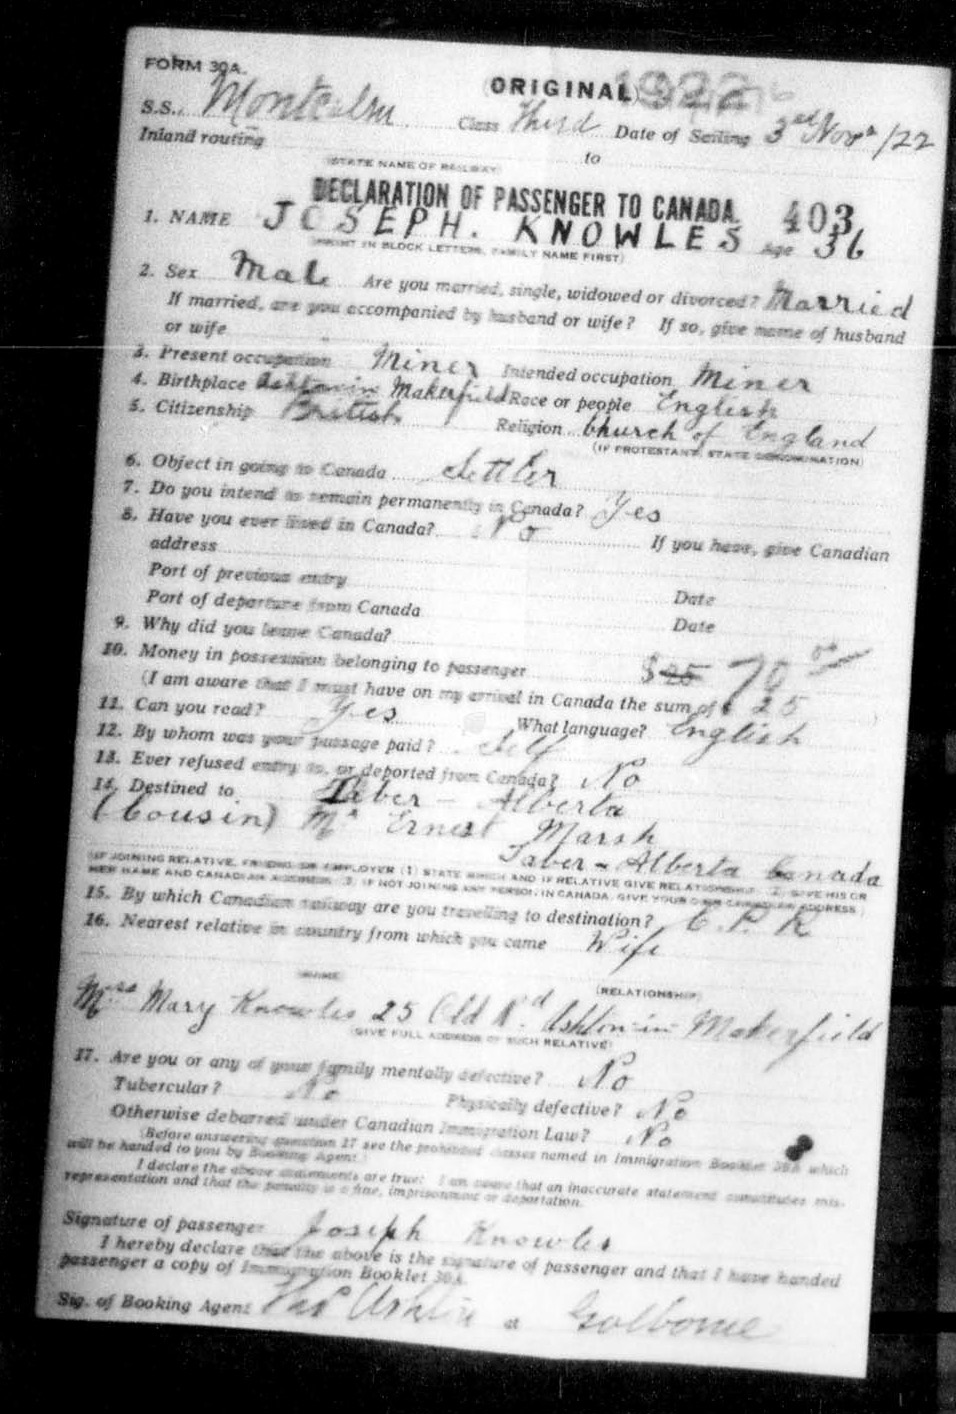 FORM 30A.
ORIGINAL 1922
S.S. Montcalm Class Third Date of Sailing 3rd Novr /22
Inland routing to
(STATE NAME OF RAILWAY)
DECLARATION OF PASSENGER TO CANADA. 403
1. NAME JOSEPH. KNOWLES Age 36
(PRINT IN BLOCK LETTERS, FAMILY NAME FIRST)
2. Sex Male Are you married, single, widowed or divorced? Married
If married, are you accompanied by husband or wife? If so, give name of husband
or wife
3. Present occupation Miner Intended occupation Miner
4. Birthplace Ashton in Makerfield Race or people English
5. Citizenship British Religion Church of England
(IF PROTESTANT, STATE DENOMINATION)
6. Object in going to Canada Settler
7. Do you intend to remain permanently in Canada? Yes
8. Have you ever lived in Canada? No If you have, give Canadian
address
Port of previous entry Date
Port of departure from Canada Date
9. Why did you leave Canada?
10. Money in possession belonging to passenger $25 70 00
(I am aware that I must have on my arrival in Canada the sum of $ 25 )
11. Can you read? Yes What language? English
12. By whom was your passage paid? Self
13. Ever refused entry to, or deported from Canada? No
14. Destined to Taber - Alberta
(Cousin) Mr Ernest Marsh
Taber - Alberta Canada
(IF JOINING RELATIVE, FRIEND OR EMPLOYER (1) STATE WHICH AND IF RELATIVE GIVE RELATIONSHIP. (2) GIVE HIS OR
HER NAME AND CANADIAN ADDRESS. (3) IF NOT JOINING ANY PERSON IN CANADA, GIVE YOUR OWN CANADIAN ADDRESS)
15. By which Canadian railway are you travelling to destination? C.P.R
16. Nearest relative in country from which you came Wife
NAME (RELATIONSHIP)
Mrs Mary Knowles 25 Old Rd Ashton-in-Makerfield
(GIVE FULL ADDRESS OF SUCH RELATIVE)
17. Are you or any of your family mentally defective? No
Tubercular? No Physically defective? No
Otherwise debarred under Canadian Immigration Law? No
(Before answering question 17 see the prohibited classes named in Immigration Booklet 30A which
will be handed to you by Booking Agent.)
I declare the above statements are true: I am aware that an inaccurate statement constitutes mis-
representation and that the penalty is a fine, imprisonment or deportation.
Signature of passenger Joseph Knowles
I hereby declare that the above is the signature of passenger and that I have handed
passenger a copy of Immigration Booklet 30A.
Sig. of Booking Agent Thos Ashton at Golborne